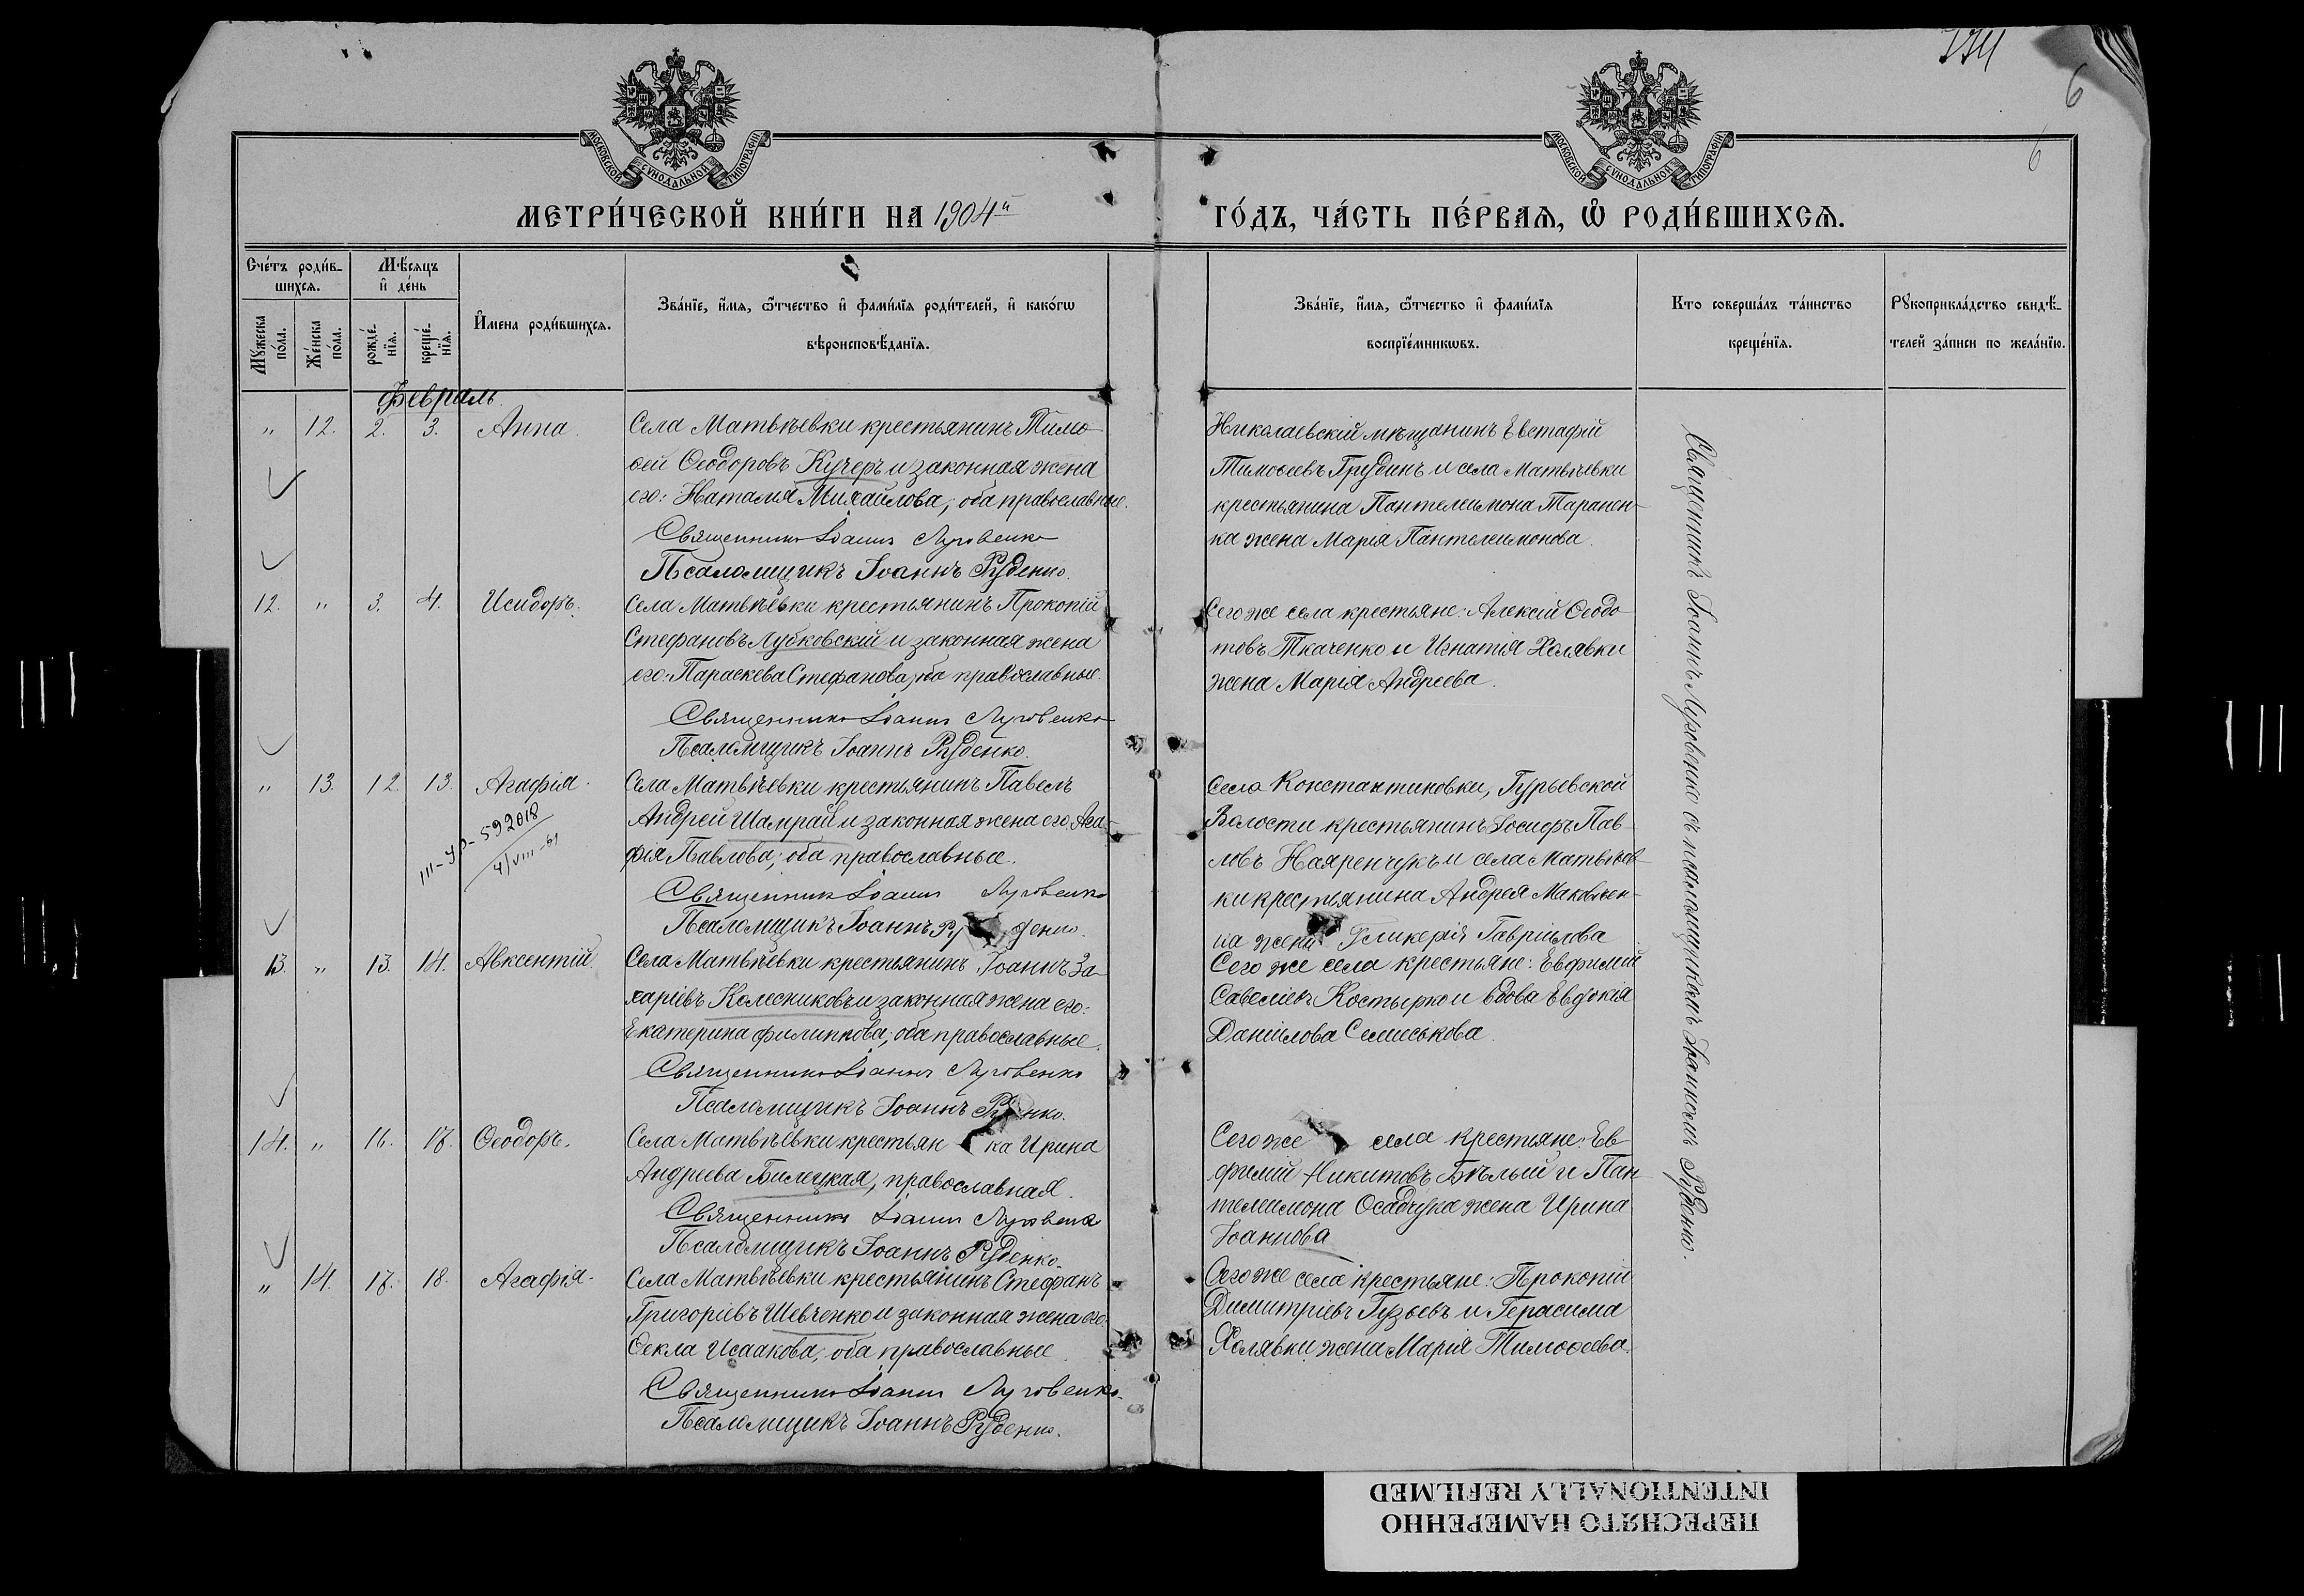 774
6
6
МОСКОВСКОЙ СѴНОДАЛЬНОЙ ТИПОГРАФІИ
МОСКОВСКОЙ СѴНОДАЛЬНОЙ ТИПОГРАФІИ
МЕТРИ́ЧЕСКОЙ КНИ́ГИ НА 1904й
ГО́ДЪ, ЧА́СТЬ ПЕ́РВАЯ, Ѡ РОДИ́ВШИХСЯ.
Счетъ родив-
шихся.
Мѣсяцъ
и день
Мужеска
пола.
Женска
пола.
рожде-
нія.
креще-
нія.
Имена родившихся.
Званіе, имя, ѿчество и фамилія родителей, и какогѡ
вѣроисповѣданія.
Званіе, имя, ѿчество и фамилія
воспріемникѡвъ.
Кто совершалъ таинство
крещенія.
Рукоприкладство свидѣ-
телей записи по желанію.
Февраль
" 12. 2. 3. Анна.
Села Матвѣевки крестьянинъ Тимо-
ѳей Ѳеодоровъ Кучеръ и законная жена
его: Наталія Михаилова; оба православные.
Священникъ Іоаннъ Луговенко
Псаломщикъ Іоаннъ Руденко.
Николаевскій мѣщанинъ Евстафій
Тимоѳеевъ Грудинъ и села Матвѣевки
крестьянина Пантелеимона Таранен-
ка жена Марія Пантелеимонова.
12. " 3. 4. Исидоръ.
Села Матвѣевки крестьянинъ Прокопій
Стефановъ Лубковскій и законная жена
его: Параскева Стефанова, оба православные.
Священникъ Іоаннъ Луговенко
Псаломщикъ Іоаннъ Руденко.
Сего же села крестьяне: Алексій Ѳеодо-
товъ Ткаченко и Игнатія Холявки
жена Марія Андреева.
" 13. 12. 13. Агафія.
III-УР-592018
4/VIII-61
Села Матвѣевки крестьянинъ Павелъ
Андрей Шамрай и законная жена его: Ага-
фія Павлова; оба православные.
Священникъ Іоаннъ Луговенко
Псаломщикъ Іоаннъ Руденко.
Села Константиновки, Гурьевской
Волости крестьянинъ Іосифъ Пав-
ловъ Наяренчукъ и села Матвѣев-
ки крестьянина Андрея Маковѣен-
ка жена Гликерія Гавріилова
13. " 13. 14. Авксентій.
Села Матвѣевки крестьянинъ Іоаннъ За-
харіевъ Колесниковъ и законная жена его:
Екатерина Филиппова; оба православные.
Священникъ Іоаннъ Луговенко
Псаломщикъ Іоаннъ Руденко.
Сего же села крестьяне: Евфимій
Савеліевъ Костырко и вдова Евдокія
Даніилова Семиськова.
14. " 16. 17. Ѳеодоръ.
Села Матвѣевки крестьянка Ирина
Андреева Билецкая, православная.
Священникъ Іоаннъ Луговенко
Псаломщикъ Іоаннъ Руденко.
Сего же села крестьяне: Ев-
фимій Никитовъ Бѣлый и Пан-
телеимона Осадчука жена Ирина
Іоаннова
" 14. 17. 18. Агафія.
Села Матвѣевки крестьянинъ Стефанъ
Григоріевъ Шевченко и законная жена его:
Ѳекла Исаакова; оба православные.
Священникъ Іоаннъ Луговенко
Псаломщикъ Іоаннъ Руденко.
Сего же села крестьяне: Прокопій
Димитріевъ Гузьевъ и Герасима
Холявки жена Марія Тимоѳеева.
Священникъ Іоаннъ Луговенко съ псаломщикомъ Іоанномъ Руденко.
ПЕРЕСНЯТО НАМЕРЕННО
INTENTIONALLY REFILMED